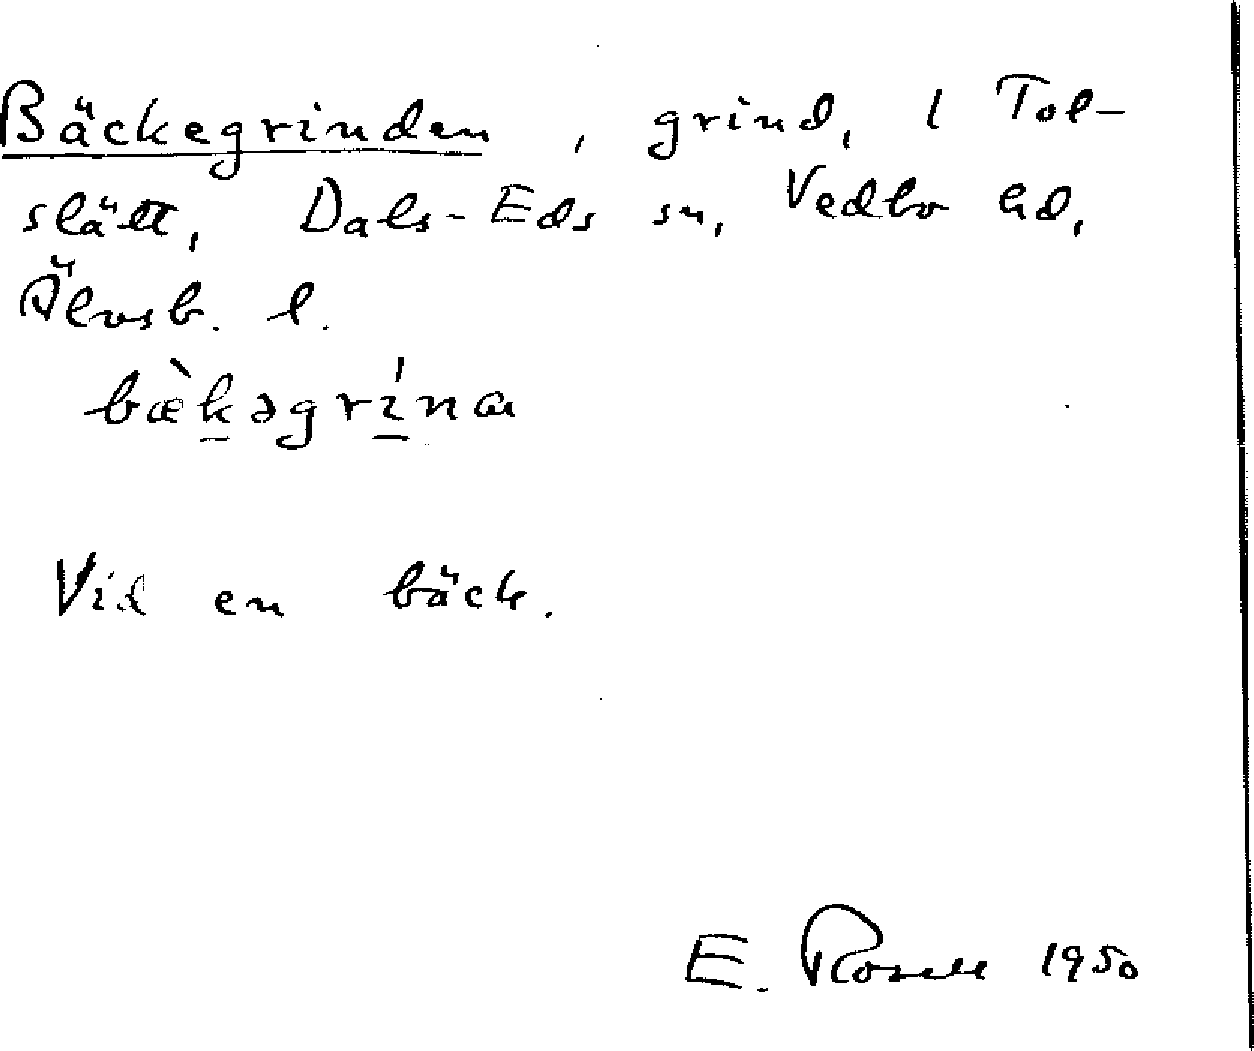 Bäckegrinden, grind, 1 Tol-
slätt, Dals-Eds sn, Vedbo hd,
Älvsb. l.
bæ̀kəgrína
Vid en bäck.
E. Rosell 1950